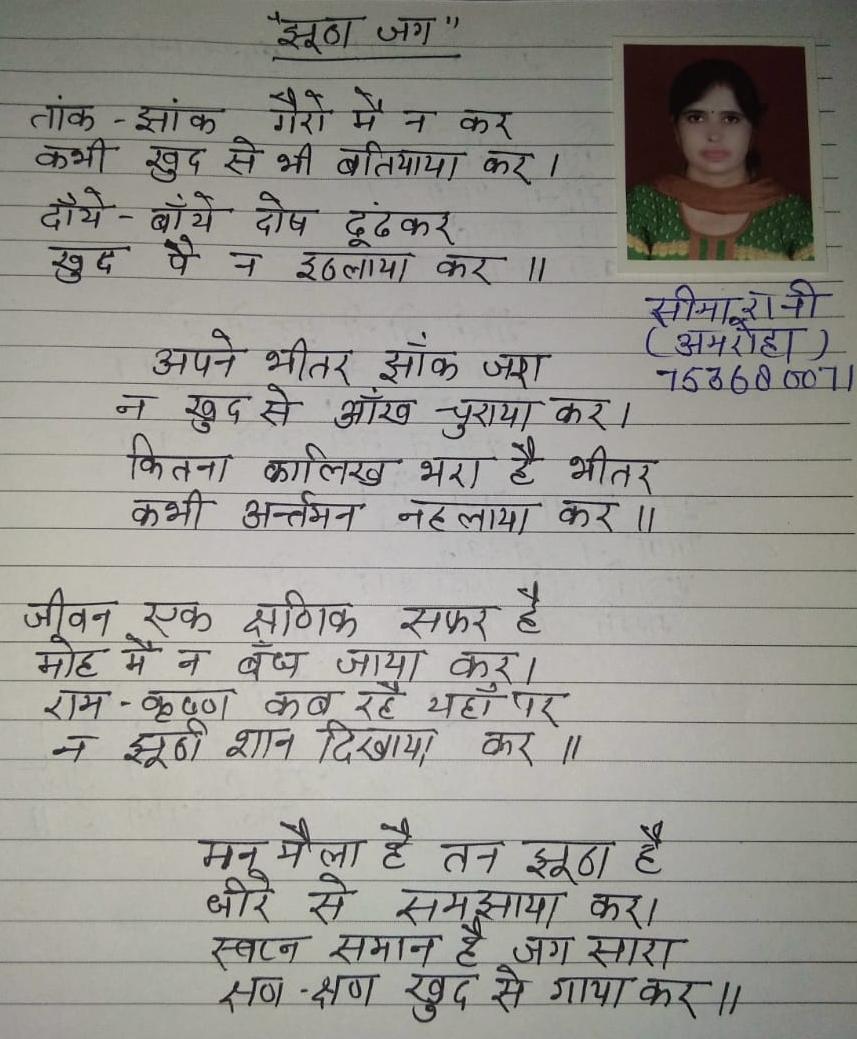 "झूठा जग"
तांक - झांक गैरो मै न कर
कभी खुद से भी बतियाया कर।
दाँये - बाँये दोष ढूंढकर
खुद पै न इठलाया कर ॥
सीमा रानी
(अमरोहा)
अपने भीतर झाँक जरा
न खुद से आँख चुराया कर।
कितना कालिख भरा है भीतर
कभी अर्न्तमन नहलाया कर ॥
जीवन एक क्षणिक सफर है
मोह मै न बँध जाया कर।
राम - कृष्ण कब रहै यहाँ पर
न झूठी शान दिखाया कर ॥
मन मैला है तन झूठा है
धीरे से समझाया कर।
स्वप्न समान है जग सारा
क्षण - क्षण खुद से गाया कर ॥